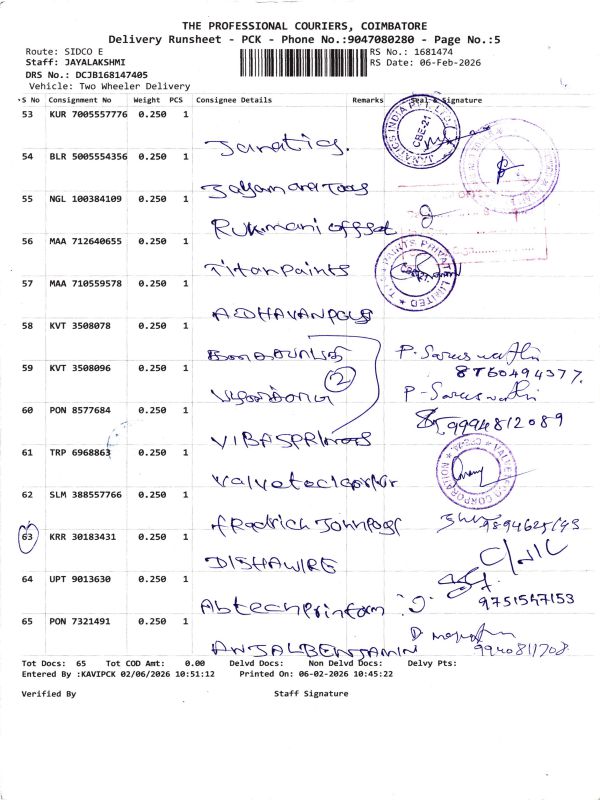 THE PROFESSIONAL COURIERS, COIMBATORE
Delivery Runsheet - PCK - Phone No.:9047080280 - Page No.:5
Route: SIDCO E RS No.: 1681474
Staff: JAYALAKSHMI RS Date: 06-Feb-2026
DRS No.: DCJB168147405
Vehicle: Two Wheeler Delivery
S No Consignment No Weight PCS Consignee Details Remarks Seal & Signature
53 KUR 7005557776 0.250 1
Janatics.
54 BLR 5005554356 0.250 1
55 NGL 100384109 0.250 1
Rukmani offset
56 MAA 712640655 0.250 1
Titan Paints
57 MAA 710559578 0.250 1
ADHAVAN
58 KVT 3508078 0.250 1
P. Saraswathi
59 KVT 3508096 0.250 1
8760494377.
2
P-Saraswathi
60 PON 8577684 0.250 1
9994812089
61 TRP 6968863 0.250 1
62 SLM 388557766 0.250 1
63 KRR 30183431 0.250 1
DISHAWIRE
64 UPT 9013630 0.250 1
Abtech
9751547153
65 PON 7321491 0.250 1
ANJALBENJAMIN
9940811708
Tot Docs: 65 Tot COD Amt: 0.00 Delvd Docs: Non Delvd Docs: Delvy Pts:
Entered By :KAVIPCK 02/06/2026 10:51:12 Printed On: 06-02-2026 10:45:22
Verified By Staff Signature